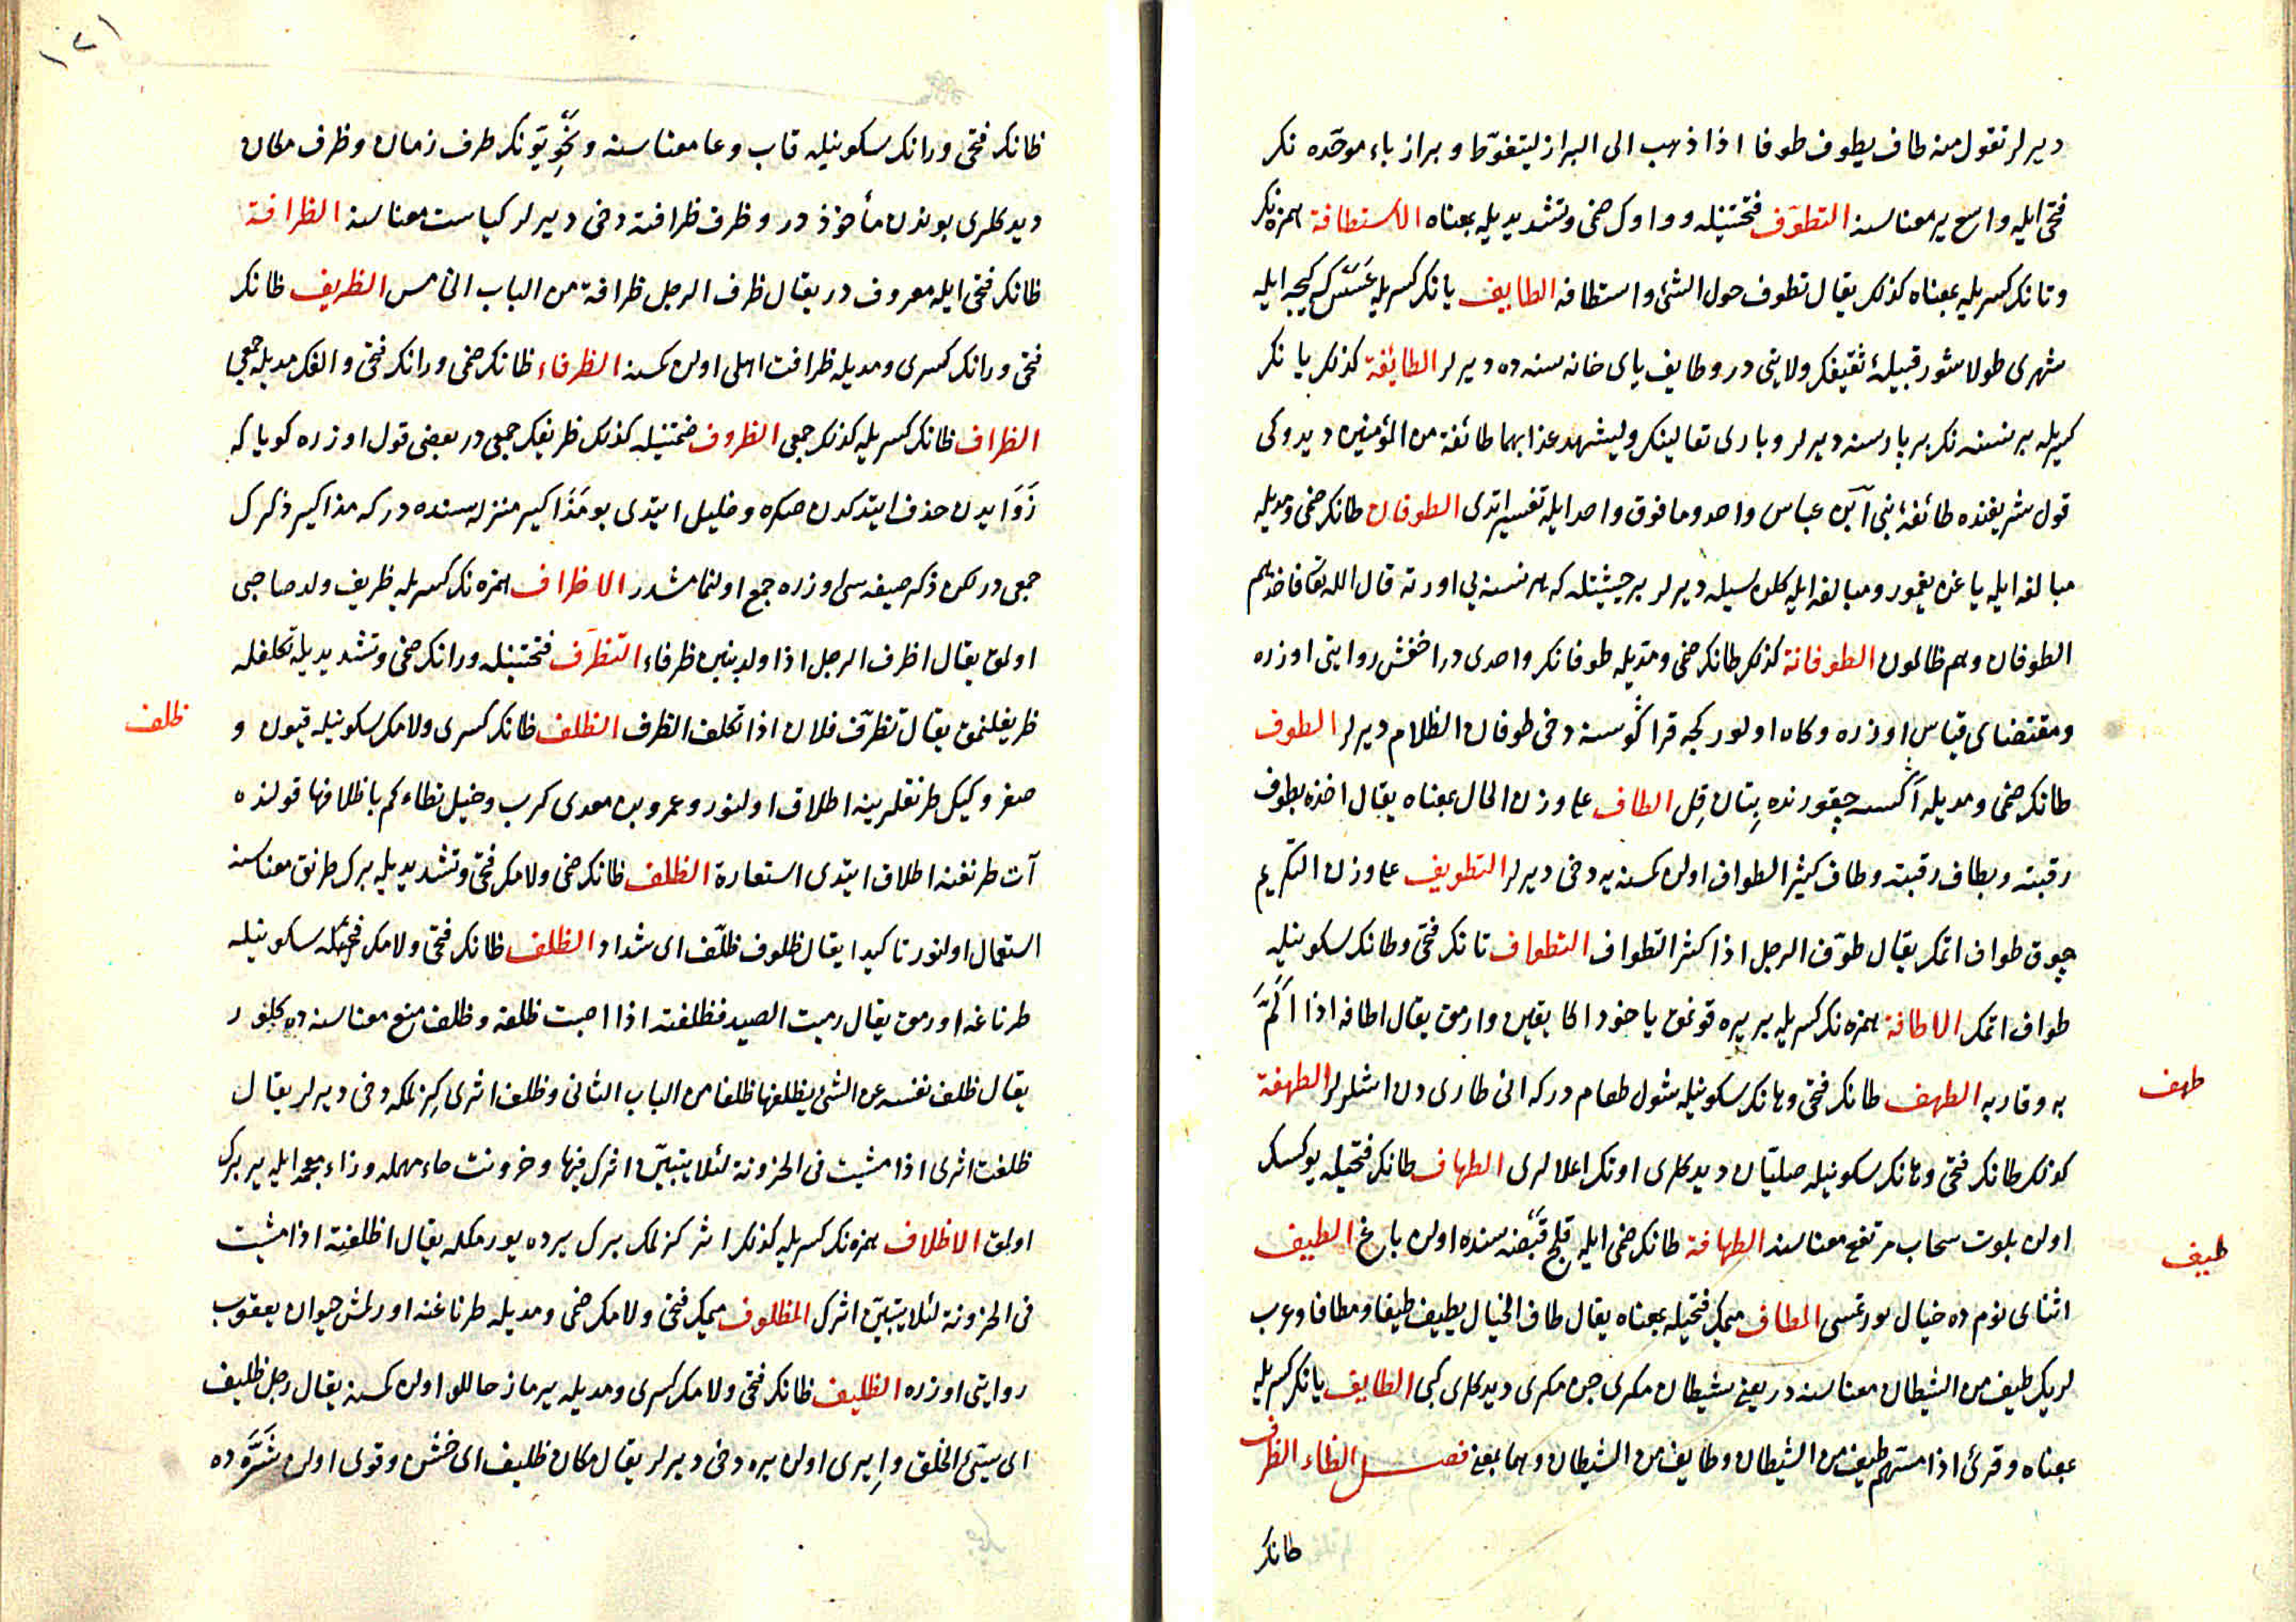 ديرلر تقول منه طاف يطوف طوفا اذا ذهب الى البراز ليتغوّط و براز باء موحّده نك
فتحى ايله واسع ير معناسنه التطوّف فتحتينله و واوك ضمى و تشديديله بمعناه الاستطافة همزه نك
و تانك كسريله بمعناه كذلك يقال تطوف حول الشئ و استطافه الطايف يانك كسريله عَسَسْ كه كيجه ايله
شهرى طولاشور قبيلهٔ ثقيفك ولايتى در و طايف ياى خانه سنه ده ديرلر الطائفة كذلك يا نك
كسريله بر نسنه نك بر پاره سنه ديرلر و بارى تعالينك وليشهد عذابهما طائفة من المؤمنين ديدوكى
قول شريفنده طائفه يى ابن عباس واحد و ما فوق واحد ايله تفسير اتدى الطوفان طانك ضمى و مديله
مبالغه ايله ياغن يغمور و مبالغه ايله كلن سيله ديرلر بر حيثيتله كه هر نسنه يى اورته قال الله تعا فاخذهم
الطوفان و هم ظالمون الطوفانة كذلك طانك ضمى و مديله طوفانك واحدى در اخفش روايتى اوزره
و مقتضاى قياس اوزره و كاه اولور كجه قراكوسنه دخى طوفان الظلام ديرلر الطوف
طانك ضمى و مديله اكسه چقورنده بتن قِل الطاف على وزن الحال بمعناه يقال اخذه بطوف
رقبته و بطاف رقبته و طاف كثير الطواف اولن كمسنه يه دخى ديرلر التطويف على وزن التكريم
چوق طواف اتمك يقال طوّف الرجل اذا كثر التطواف التطواف تانك فتحى و طانك سكونيله
طواف اتمك الاطافة همزه نك كسريله بر يره قونمق ياخود اكا يقين وارمق يقال اطافه اذا اَلَمَّ
به و قاربه الطهف طانك فتحى و هانك سكونيله شول طعام دركه انى طارى دن اشلرلر الطهفة
كذلك طانك فتحى و هانك سكونيله صليّان ديدكلرى اونك اعلالرى الطهاف طانك فتحيله يوكسك
اولن بلوت سحاب مرتفع معناسنه الطهافة طانك ضمى ايله قلج قبضه سنده اولن باغ الطيف
اثناى نوم ده خيال كورنمسى المطاف ميمك فتحيله بمعناه يقال طاف الخيال يطيف طيفا و مطافا و عرب
لريك طيف من الشيطان معناسنه در يعنى شيطان مكرى جن مكرى ديدكلرى كبى الطايف يانك كسريله
بمعناه و قرئ اذا مسّهم طيف من الشيطان و طايف من الشيطان و هما بمعنى فصل الظاء الظرف
طانك
طهف
طيف
١٢١
ظانك فتحى و رانك سكونيله قاب و عا معناسنه و نحويّونك ظرف زمان و ظرف مكان
ديدكلرى بوندن مأخوذ در و ظرف ظرافته دخى ديرلر كياست معناسنه الظرافة
ظانك فتحى ايله معروف در يقال ظرف الرجل ظرافة من الباب الخامس الظريف ظانك
فتحى و رانك كسرى و مديله ظرافت اهلى اولن كمسنه الظرفاء ظانك ضمى و رانك فتحى و الفك مديله جمعى
الظراف ظانك كسريله كذلك جمعى الظروف ضمتينله كذلك ظريفك جمعى در بعضى قول اوزره كويا كه
زَوَايدن حذف ايتدكدن صكره و خليل ايتدى بو مَذَاكير منزله سنده دركه مذاكير ذكرك
جمعى در لكن ذكر صيغه سى اوزره جمع اولنمامشدر الاظراف همزه نك كسريله ظريف ولد صاحبى
اولمق يقال اظرف الرجل اذا ولد بنين ظرفاء التظرّف فتحتينله و رانك ضمى و تشديديله تكلفله
ظريفلنمق يقال تظرّف فلان اذا تكلف الظرف الظلف ظانك كسرى و لامك سكونيله قيون و
صغر و كيك طرنقلرينه اطلاق اولنور و عمرو بن معدى كرب و خيل تطاءكم باظلافها قولنده
آت طرنغنه اطلاق ايتدى استعارة الظلف ظانك ضمى و لامك فتحى و تشديديله برك طرنق معناسنه
استعمال اولنور تاكيدا يقال ظلوف ظلّف اى شداد الظلف ظانك فتحى و لامك سكونيله
طرناغه اورمق يقال رميت الصيد فظلفته اذا اصبت ظلفه و ظلف منع معناسنه ده كلور
يقال ظلف نفسه عن الشئ يظلفها ظلفا من الباب الثانى و ظلف اثرى كزلمكه دخى ديرلر يقال
ظلفت اثرى اذا مشيت فى الحزونة لئلا يتبيّن اثرك فيها و حزونت حاء مهمله و زاء معجمه ايله ير برك
اولمق الاظلاف همزه نك كسريله كذلك اثر كزلمك برك يرده يورمكله يقال اظلفته اذا مشيت
فى الحزونة لئلا يتبيّن اثرك المظلوف ميمك فتحى و لامك ضمى و مديله طرناغنه اورلمش حيوان يعقوب
روايتى اوزره الظليف ظانك فتحى و لامك كسرى و مديله يرماز حاللو اولن كمسنه يقال رجل ظليف
اى سيّئ الخلق و اِيرى اولن يره دخى ديرلر يقال مكان ظليف اى خشن و قوى اولن شَرَّه ده
ظلف